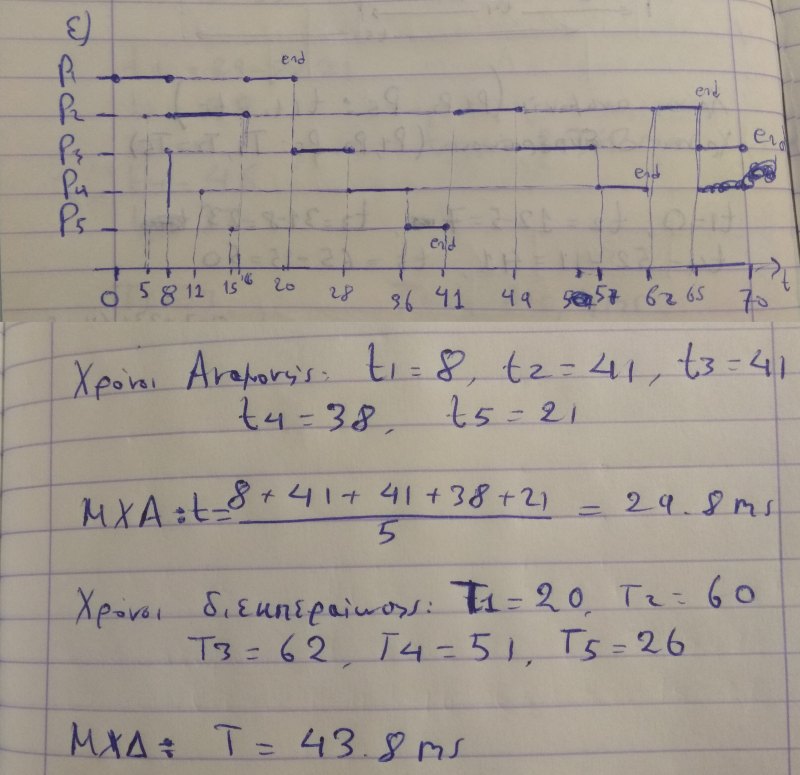 ε)
P1 end
P2 end
P3 end
P4 end
P5 end
0 5 8 12 15 16 20 28 36 41 49 57 62 65 70 t
Χρόνοι Αναμονής: t1 = 8, t2 = 41, t3 = 41
t4 = 38, t5 = 21
ΜΧΑ: t = 8 + 41 + 41 + 38 + 21 / 5 = 29.8 ms
Χρόνοι διεκπεραίωσης: T1 = 20, T2 = 60
T3 = 62, T4 = 51, T5 = 26
ΜΧΔ: T = 43.8 ms